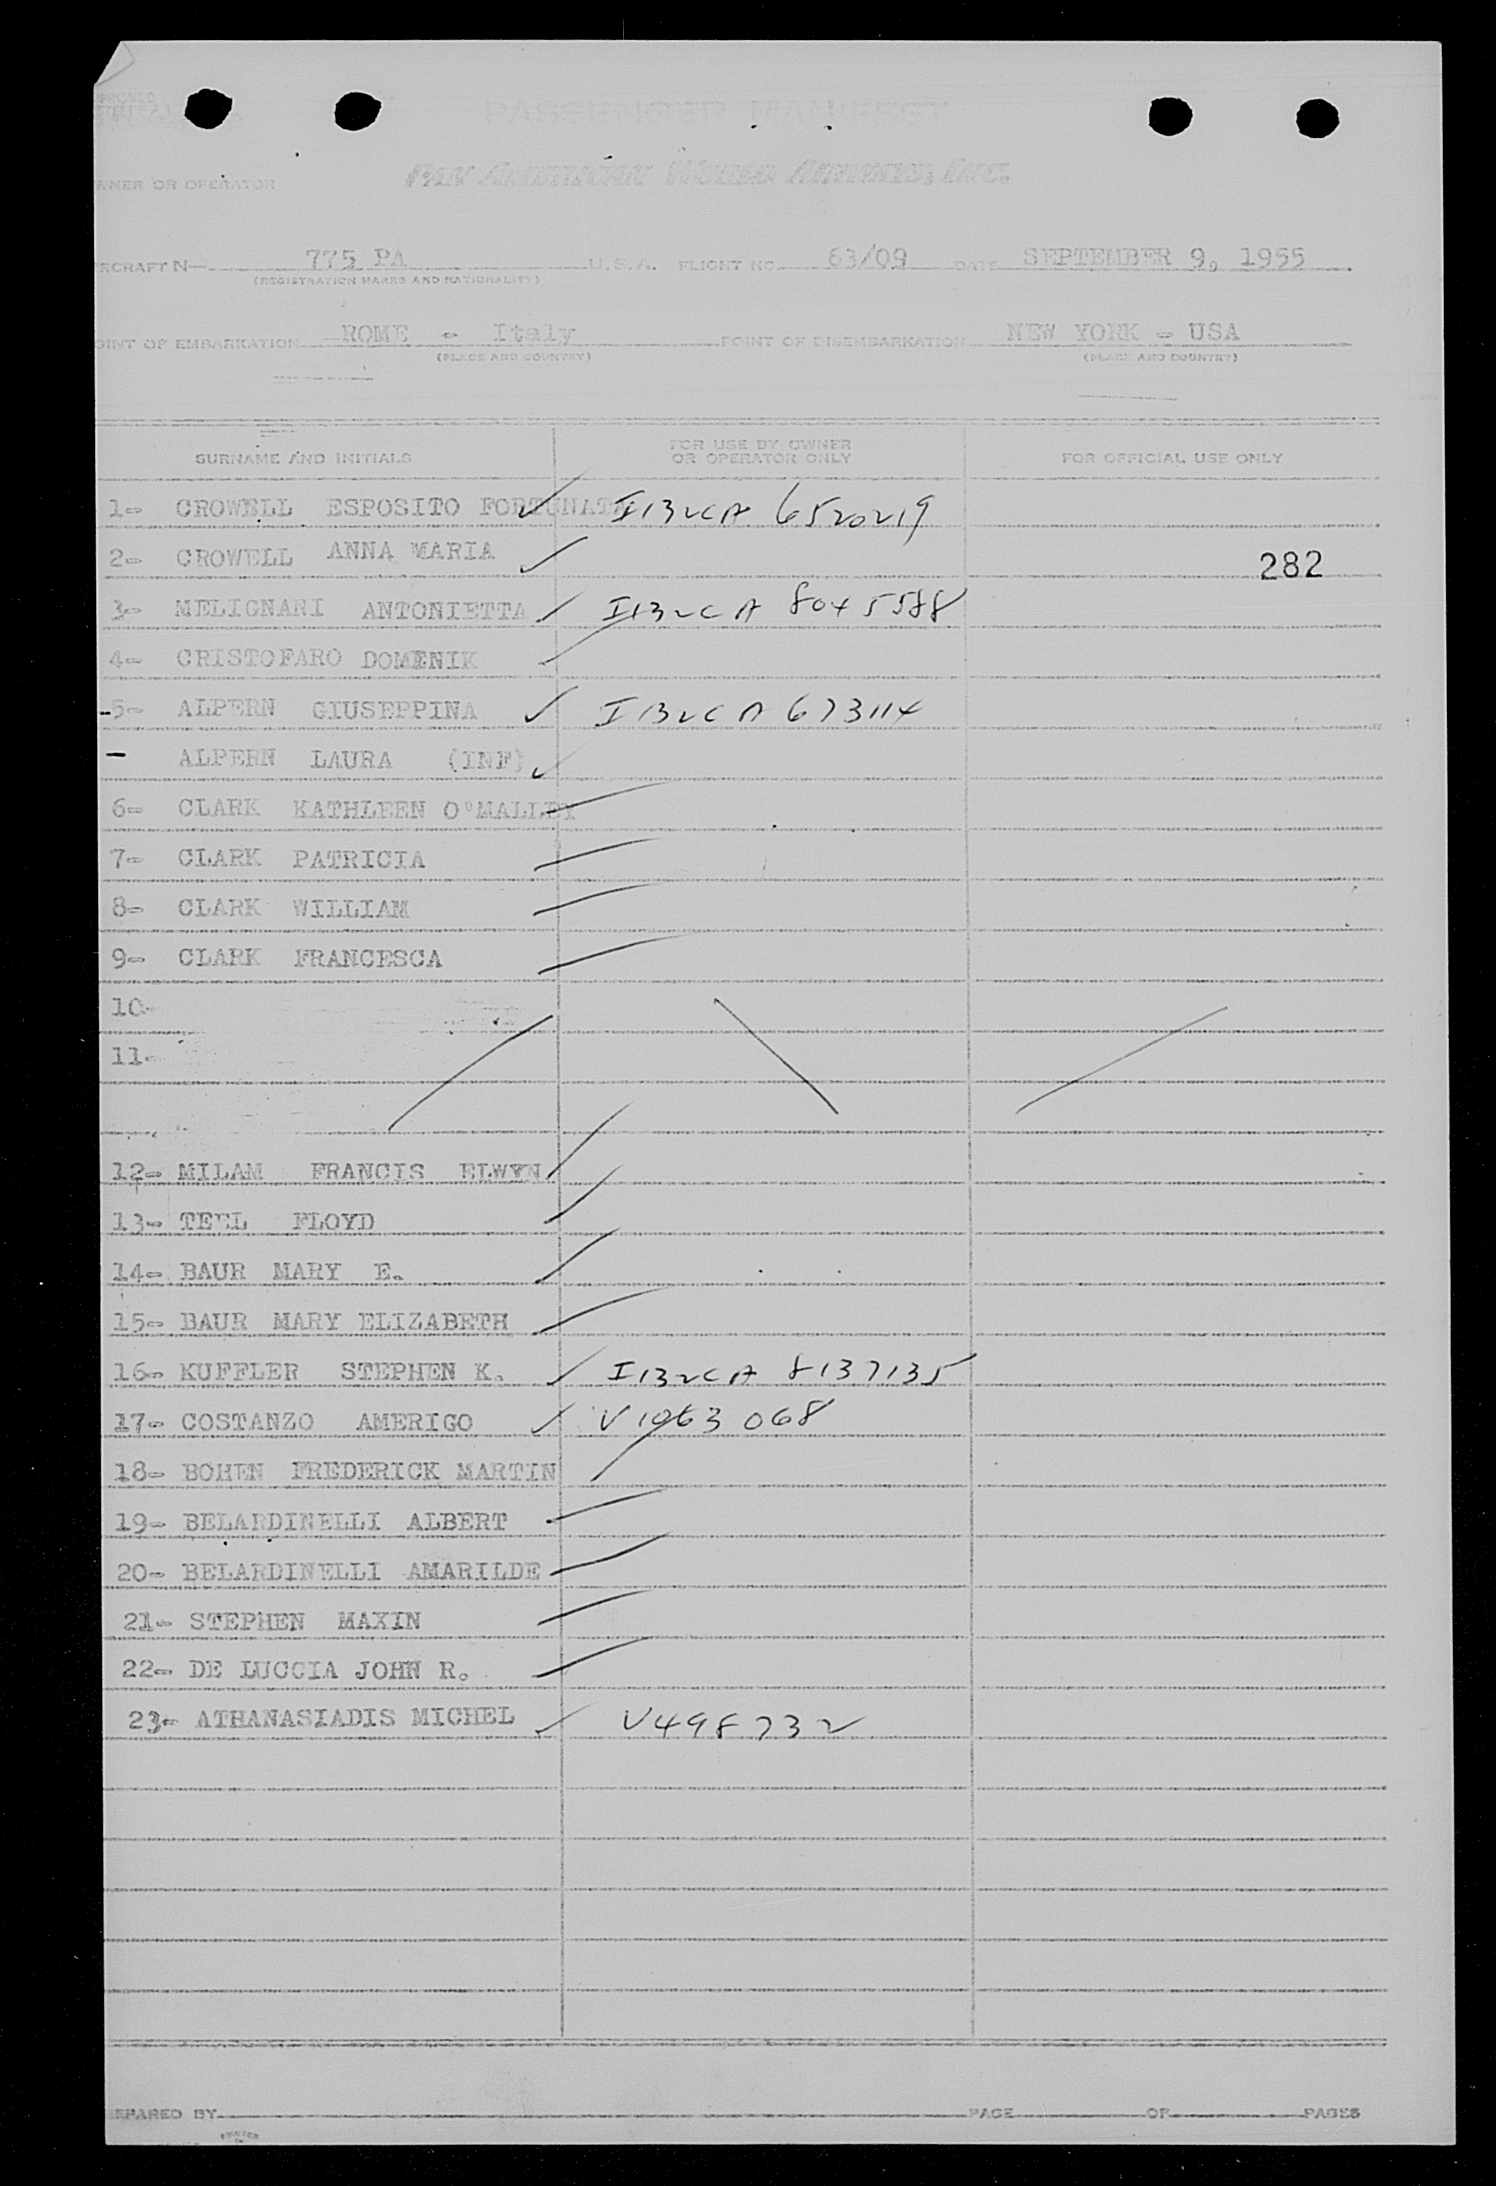 PASSENGER MANIFEST
OWNER OR OPERATOR PAN AMERICAN WORLD AIRWAYS, INC.
AIRCRAFT N— 775 PA U.S.A. FLIGHT NO. 63/09 DATE SEPTEMBER 9, 1955
(REGISTRATION MARKS AND NATIONALITY)
POINT OF EMBARKATION ROME - Italy POINT OF DISEMBARKATION NEW YORK - USA
(PLACE AND COUNTRY) (PLACE AND COUNTRY)
SURNAME AND INITIALS FOR USE BY OWNER OR OPERATOR ONLY FOR OFFICIAL USE ONLY
1- CROWELL ESPOSITO FORTUNATA ✓ I132CA 6520219
2- CROWELL ANNA MARIA ✓ 282
3- MELIGNARI ANTONIETTA ✓ I132CA 8045588
4- CRISTOFARO DOMENIK
-5- ALPERN GIUSEPPINA ✓ I132CA 673114
- ALPERN LAURA (INF) ✓
6- CLARK KATHLEEN O'MALLEY
7- CLARK PATRICIA
8- CLARK WILLIAM
9- CLARK FRANCESCA
10-
11-
12- MILAM FRANCIS ELWYN
13- TEEL FLOYD
14- BAUR MARY E.
15- BAUR MARY ELIZABETH
16- KUFFLER STEPHEN K. ✓ I132CA 8137135
17- COSTANZO AMERIGO ✓ V1063 068
18- BOHEN FREDERICK MARTIN
19- BELARDINELLI ALBERT
20- BELARDINELLI AMARILDE
21- STEPHEN MAXIN
22- DE LUCCIA JOHN R.
23- ATHANASIADIS MICHEL ✓ V498732
PREPARED BY PAGE OF PAGES